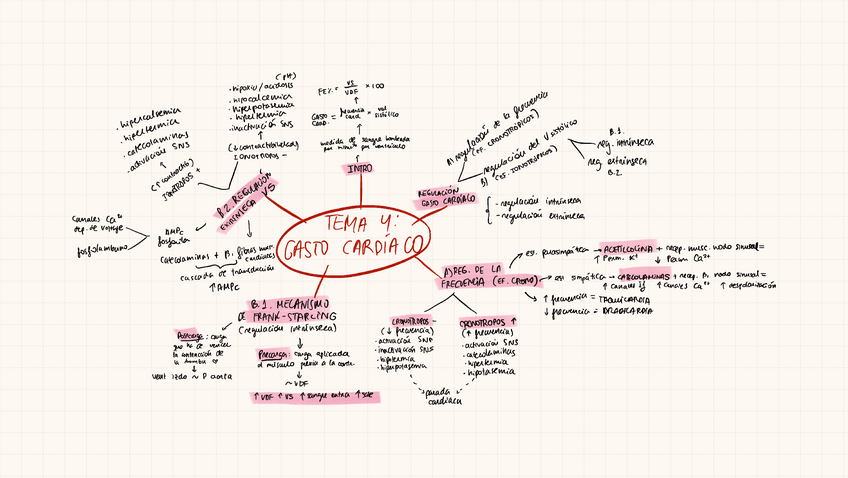 TEMA 4:
GASTO CARDÍACO
INTRO
medida de sangre bombeada
por minuto por ventrículo
GASTO CARD. = frecuencia card. × vol sistólico
FE% = VS / VDF × 100
REGULACIÓN
GASTO CARDÍACO
A) regulación de la frecuencia
(EF. CRONOTRÓPICOS)
B) regulación del V sistólico
(EF. IONOTRÓPICOS)
B.1.
reg. intrínseca
reg. extrínseca
B.2
- regulación intrínseca
- regulación extrínseca
A) REG. DE LA
FRECUENCIA (EF. CRONO)
est. parasimpática → ACETILCOLINA + recep. musc. nodo sinusal =
↑ Perm. K⁺ ↓ Perm Ca²⁺
est simpática → CATECOLAMINAS + recep. β₁ nodo sinusal =
↑ canales if ↑ canales Ca²⁺ ↑ despolarización
↑ frecuencia = TAQUICARDIA
↓ frecuencia = BRADICARDIA
CRONOTROPOS -
(↓ frecuencia)
· activación SNP
· inactivación SNS
· hipotermia
· hiperpotasemia
CRONOTROPOS ↑
(↑ frecuencia)
· activación SNS
· catecolaminas
· hipertermia
· hipopotasemia
parada
cardíaca
B.1. MECANISMO
DE FRANK-STARLING
(regulación intrínseca)
Precarga: carga aplicada
al músculo previo a la contr.
~ VDF
↑ VDF ↑ VS ↑ sangre entra ↑ sale
Postcarga: carga
que ha de vencer
la contracción de
la bomba
vent izdo ~ P aorta
B.2. REGULACIÓN
EXTRÍNSECA VS
IONOTROPOS -
(↓ contractibilidad)
· inactivación SNS
· hipertermia
· hiperpotasemia
· hipocalcemia
· hipoxia/acidosis
(pH)
IONOTROPOS +
(↑ contractib)
· hipercalcemia
· hipertermia
· catecolaminas
· activación SNS
Catecolaminas + β₁ fibras musc. cardiacas
cascada de transducción
↑ AMPc
AMPc
fosforila
Canales Ca²⁺
dep. de voltaje
fosfolambano